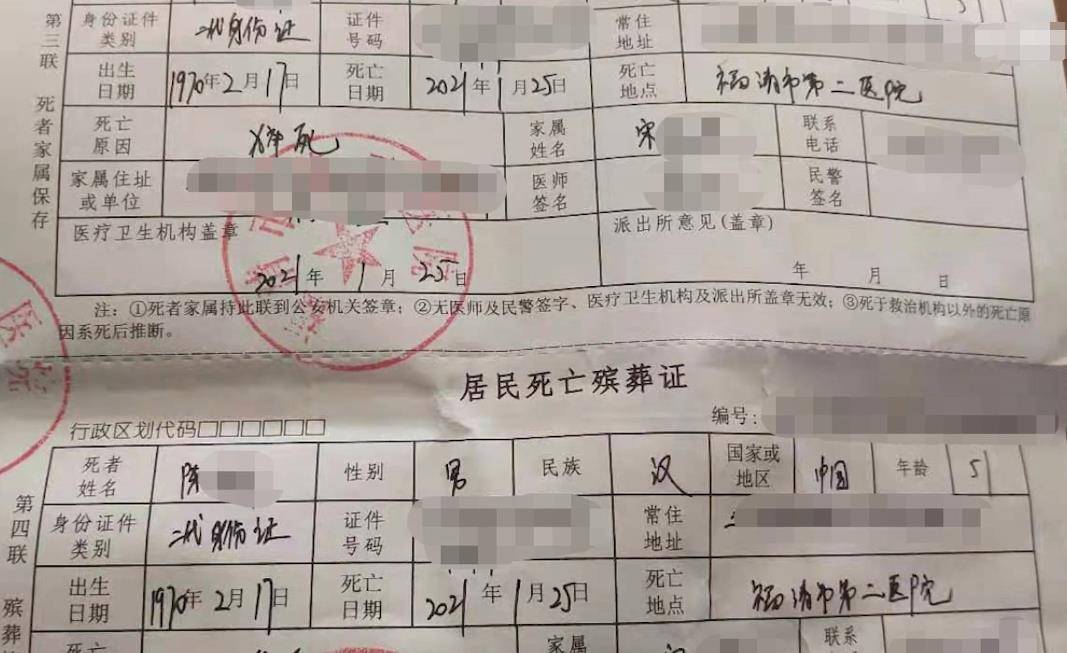 第三联 死者家属保存
身份证件类别 二代身份证 证件号码 常住地址
出生日期 1970年2月17日 死亡日期 2021年1月25日 死亡地点 福清市第二医院
死亡原因 猝死 家属姓名 宋 联系电话
家属住址或单位 医师签名 民警签名
医疗卫生机构盖章 派出所意见(盖章)
2021年1月25日 年 月 日
注：①死者家属持此联到公安机关签章；②无医师及民警签字、医疗卫生机构及派出所盖章无效；③死于救治机构以外的死亡原
因系死后推断。
居民死亡殡葬证
行政区划代码□□□□□□ 编号:
第四联 殡葬
死者姓名 陈 性别 男 民族 汉 国家或地区 中国 年龄 51
身份证件类别 二代身份证 证件号码 常住地址
出生日期 1970年2月17日 死亡日期 2021年1月25日 死亡地点 福清市第二医院
死亡 家属 联系